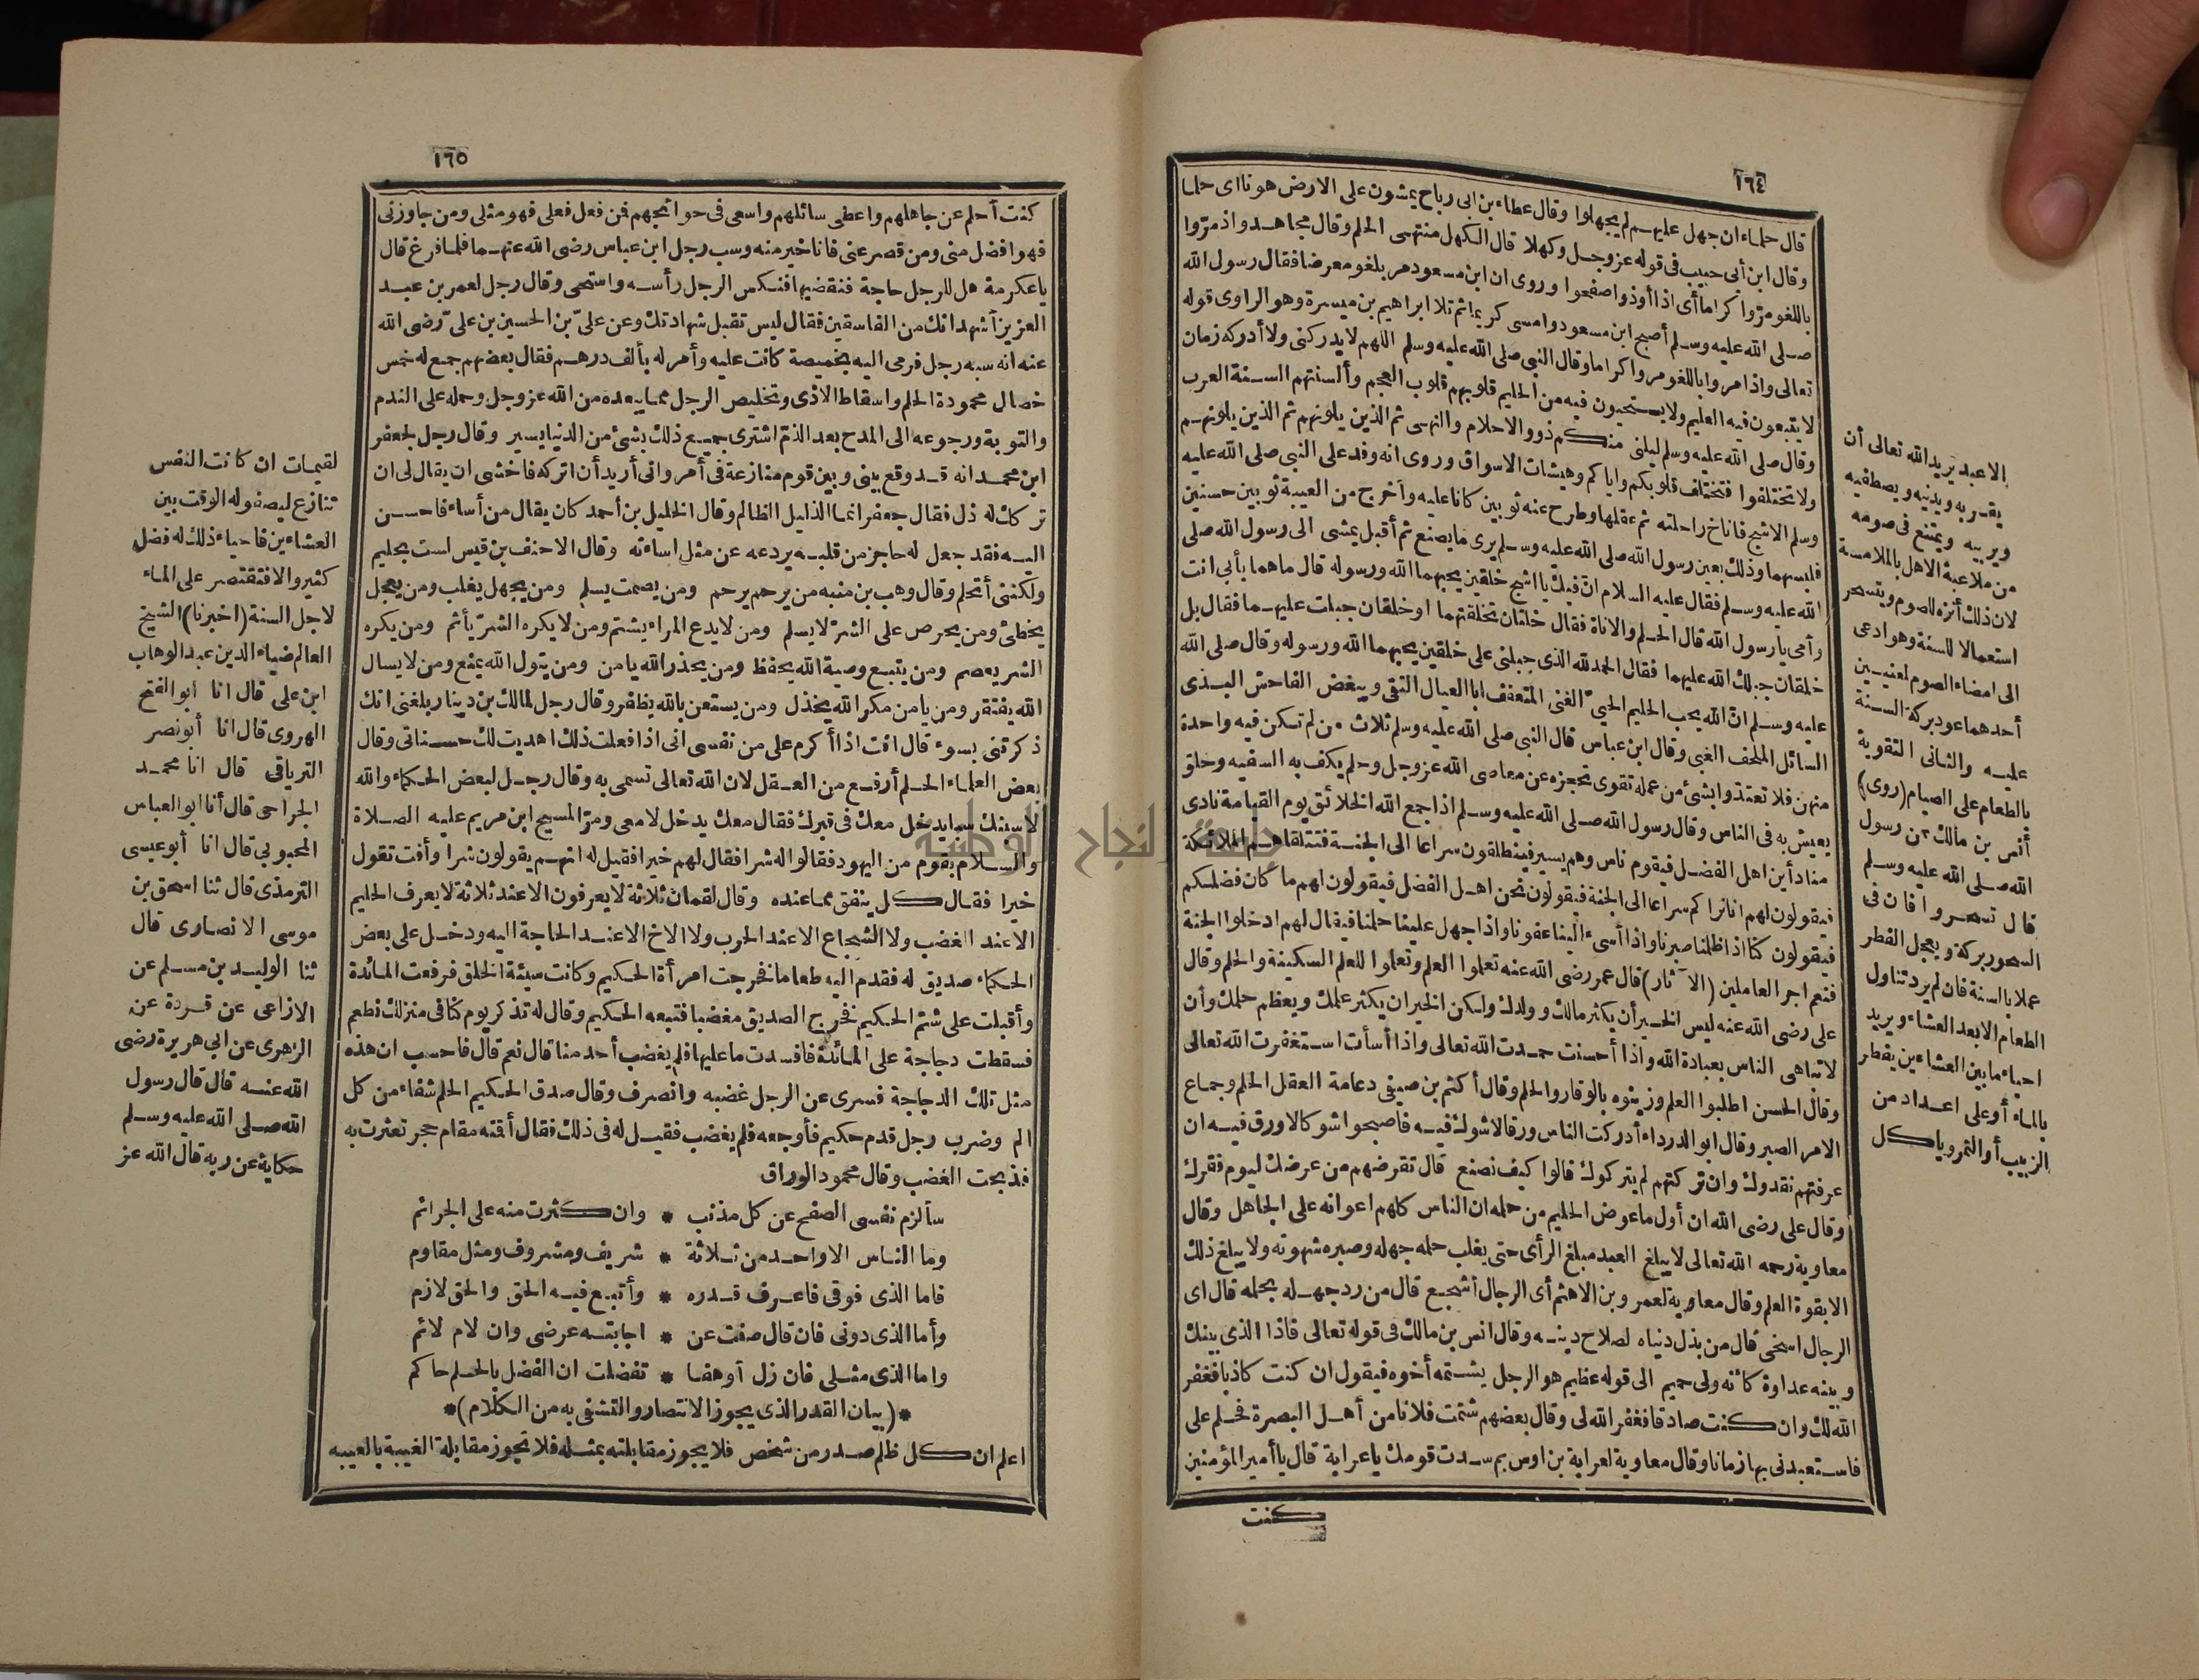 ١٦٤
قال حلماء ان جهل عليهم لم يجهلوا وقال عطاء بن ابى رباح يمشون على الارض هونا اى حلما
وقال ابن أبى حبيب فى قوله عز وجل وكهلا قال الكهل منتهى الحلم وقال مجاهد واذ مرّوا
باللغو مرّوا كراما أى اذا أوذوا صفحوا وروى ان ابن مسعود مر بلغو معرضا فقال رسول الله
صلى الله عليه وسلم أصبح ابن مسعود وامسى كريما ثم تلا ابراهيم بن ميسرة وهو الراوى قوله
تعالى واذا مروا باللغو مروا كراما وقال النبى صلى الله عليه وسلم اللهم لا يدركنى ولا أدركه زمان
لا يتبعون فيه العليم ولا يستحيون فيه من الحليم قلوبهم قلوب العجم وألسنتهم السنة العرب
وقال صلى الله عليه وسلم ليلنى منكم ذوو الاحلام والنهى ثم الذين يلونهم ثم الذين يلونهم
ولا تختلفوا فتختلف قلوبكم واياكم وهيشات الاسواق وروى انه وفد على النبى صلى الله عليه
وسلم الاشج فاناخ راحلته ثم عقلها وطرح عنه ثوبين كانا عليه وأخرج من العيبة ثوبين حسنين
فلبسهما وذلك بعين رسول الله صلى الله عليه وسلم يرى ما يصنع ثم أقبل يمشى الى رسول الله صلى
الله عليه وسلم فقال عليه السلام انّ فيك يا اشج خلقين يحبهما الله ورسوله قال ماهما بأبى انت
وأمى يا رسول الله قال الحلم والاناة فقال خلقان تخلقتهما او خلقان جبلت عليهما فقال بل
خلقان جبلك الله عليهما فقال الحمد لله الذى جبلنى على خلقين يحبهما الله ورسوله وقال صلى الله
عليه وسلم انّ الله يحب الحليم الحيىّ الغنى المتعفف ابا العيال التقى ويبغض الفاحش البذى
السائل الملحف الغبى وقال ابن عباس قال النبى صلى الله عليه وسلم ثلاث من لم تكن فيه واحدة
منهن فلا تعتدوا بشئ من عمله تقوى تحجزه عن معاصى الله عز وجل وحلم يكف به السفيه وخلق
يعيش به فى الناس وقال رسول الله صلى الله عليه وسلم اذا جمع الله الخلائق يوم القيامة نادى
مناد أين اهل الفضل فيقوم ناس وهم يسير فينطلقون سراعا الى الجنة فتتلقاهم الملائكة
فيقولون لهم انا نراكم سراعا الى الجنة فيقولون نحن اهل الفضل فيقولون لهم ما كان فضلكم
فيقولون كنا اذا ظلمنا صبرنا واذا أسىء الينا عفونا واذا جهل علينا حلمنا فيقال لهم ادخلوا الجنة
فنعم اجر العاملين (الآثار) قال عمر رضى الله عنه تعلموا العلم وتعلموا للعلم السكينة والحلم وقال
على رضى الله عنه ليس الخير أن يكثر مالك وولدك ولكن الخير ان يكثر علمك ويعظم حلمك وأن
لا تباهى الناس بعبادة الله واذا أحسنت حمدت الله تعالى واذا أسأت استغفرت الله تعالى
وقال الحسن اطلبوا العلم وزينوه بالوقار والحلم وقال أكثم بن صيفى دعامة العقل الحلم وجماع
الامر الصبر وقال ابو الدرداء أدركت الناس ورقا لا شوك فيه فاصبحوا شوكا لا ورق فيه ان
عرفتهم نقدوك وان تركتهم لم يتركوك قالوا كيف نصنع قال تقرضهم من عرضك ليوم فقرك
وقال على رضى الله ان أول ما عوض الحليم من حلمه ان الناس كلهم اعوانه على الجاهل وقال
معاوية رحمه الله تعالى لا يبلغ العبد مبلغ الرأى حتى يغلب حلمه جهله وصبره شهوته ولا يبلغ ذلك
الا بقوة العلم وقال معاوية لعمرو بن الاهتم أى الرجال أشجع قال من رد جهله بحلمه قال اى
الرجال اسخى قال من بذل دنياه لصلاح دينه وقال انس بن مالك فى قوله تعالى فاذا الذى بينك
وبينه عداوة كأنه ولى حميم الى قوله عظيم هو الرجل يشتمه أخوه فيقول ان كنت كاذبا فغفر
الله لك وان كنت صادقا فغفر الله لى وقال بعضهم شتمت فلانا من أهل البصرة فحلم على
فاستعبدنى بها زمانا وقال معاوية لعرابة بن اوس بم سدت قومك يا عرابة قال يا أمير المؤمنين
كنت
الا عبد يريد الله تعالى أن
يقربه ويدنيه ويصطفيه
ويربيه ويمتنع فى صومه
من ملاعبة الاهل بالملامسة
لان ذلك أنزه للصوم ويتسحر
استعمالا للسنة وهو ادعى
الى امضاء الصوم لمعنيين
أحدهما عود بركة السنة
عليه والثانى التقوية
بالطعام على الصيام (روى)
أنس بن مالك عن رسول
الله صلى الله عليه وسلم
قال تسحروا فان فى
السحور بركة ويعجل الفطر
عملا بالسنة فان لم يرد تناول
الطعام الا بعد العشاء ويريد
احياء ما بين العشاءين يفطر
بالماء أو على اعداد من
الزبيب أو التمر وياكل
١٦٥
كنت أحلم عن جاهلهم واعطى سائلهم واسعى فى حوائجهم فمن فعل فعلى فهو مثلى ومن جاوزنى
فهو افضل منى ومن قصر عنى فانا خير منه وسب رجل ابن عباس رضى الله عنهما فلما فرغ قال
يا عكرمة هل للرجل حاجة فنقضيها فنكس الرجل رأسه واستحى وقال رجل لعمر بن عبد
العزيز أشهد انك من الفاسقين فقال ليس تقبل شهادتك وعن علىّ بن الحسين بن علىّ رضى الله
عنه انه سبه رجل فرمى اليه بخميصة كانت عليه وأمر له بألف درهم فقال بعضهم جمع له خمس
خصال محمودة الحلم واسقاط الاذى وتخليص الرجل مما يبعده من الله عز وجل وحمله على الندم
والتوبة ورجوعه الى المدح بعد الذمّ اشترى جميع ذلك بشئ من الدنيا يسير وقال رجل لجعفر
ابن محمد انه قد وقع بينى وبين قوم منازعة فى أمر وانى أريد أن اتركه فاخشى ان يقال لى ان
تركك له ذل فقال جعفر انما الذليل الظالم وقال الخليل بن أحمد كان يقال من أساء فاحسن
اليه فقد جعل له حاجز من قلبه يردعه عن مثل اساءته وقال الاحنف بن قيس لست بحليم
ولكننى أتحلم وقال وهب بن منبه من يرحم يرحم ومن يصمت يسلم ومن يجهل يغلب ومن يعجل
يخطئ ومن يحرص على الشرّ لا يسلم ومن لا يدع المراء يشتم ومن لا يكره الشرّ يأثم ومن يكره
الشر يعصم ومن يتبع وصية الله يحفظ ومن يحذر الله يامن ومن يتول الله يمنع ومن لا يسال
الله يفتقر ومن يامن مكر الله يخذل ومن يستعن بالله يظفر وقال رجل لمالك بن دينار بلغنى انك
ذكرتنى بسوء قال انت اذا أكرم على من نفسى انى اذا فعلت ذلك اهديت لك حسناتى وقال
بعض العلماء الحلم أرفع من العقل لان الله تعالى تسمى به وقال رجل لبعض الحكماء والله
لأسبنك سبا يدخل معك فى قبرك فقال معك يدخل لا معى ومرّ المسيح ابن مريم عليه الصلاة
والسلام بقوم من اليهود فقالوا له شرا فقال لهم خيرا فقيل له انهم يقولون شرا وأنت تقول
خيرا فقال كل ينفق مما عنده وقال لقمان ثلاثة لا يعرفون الا عند ثلاثة لا يعرف الحليم
الا عند الغضب ولا الشجاع الا عند الحرب ولا الاخ الا عند الحاجة اليه ودخل على بعض
الحكماء صديق له فقدم اليه طعاما فخرجت امرأة الحكيم وكانت سيئة الخلق فرفعت المائدة
وأقبلت على شتم الحكيم فخرج الصديق مغضبا فتبعه الحكيم وقال له تذكر يوم كنا فى منزلك نطعم
فسقطت دجاجة على المائدة فافسدت ما عليها فلم يغضب أحد منا قال نعم قال فاحسب ان هذه
مثل تلك الدجاجة فسرى عن الرجل غضبه وانصرف وقال صدق الحكيم الحلم شفاء من كل
الم وضرب رجل قدم حكيم فأوجعه فلم يغضب فقيل له فى ذلك فقال أقته مقام حجر تعثرت به
فذبحت الغضب وقال محمود الوراق
سألزم نفسى الصفح عن كل مذنب * وان كثرت منه على الجرائم
وما الناس الا واحد من ثلاثة * شريف ومشروف ومثل مقاوم
فاما الذى فوقى فاعرف قدره * وأتبع فيه الحق والحق لازم
وأما الذى دونى فان قال صنت عن * اجابته عرضى وان لام لائم
واما الذى مثلى فان زل أوهفا * تفضلت ان الفضل بالحلم حاكم
*(بيان القدر الذى يجوز الانتصار والتشفى به من الكلام)*
اعلم ان كل ظلم صدر من شخص فلا يجوز مقابلته بمثله فلا تجوز مقابلة الغيبة بالغيبه
لقيمات ان كانت النفس
تنازع ليصفو له الوقت بين
العشاءين فاحياء ذلك له فضل
كثير والا فتقتصر على الماء
لاجل السنة (اخبرنا) الشيخ
العالم ضياء الدين عبد الوهاب
ابن على قال انا ابو الفتح
الهروى قال انا أبو نصر
الترياقى قال انا محمد
الجراحى قال أنا ابو العباس
المحبوبى قال انا أبو عيسى
الترمذى قال ثنا اسحق بن
موسى الانصارى قال
ثنا الوليد بن مسلم عن
الازاعى عن قردة عن
الزهرى عن ابى هريرة رضى
الله عنه قال قال رسول
الله صلى الله عليه وسلم
حكاية عن ربه قال الله عز
جامعة النجاح الوطنية